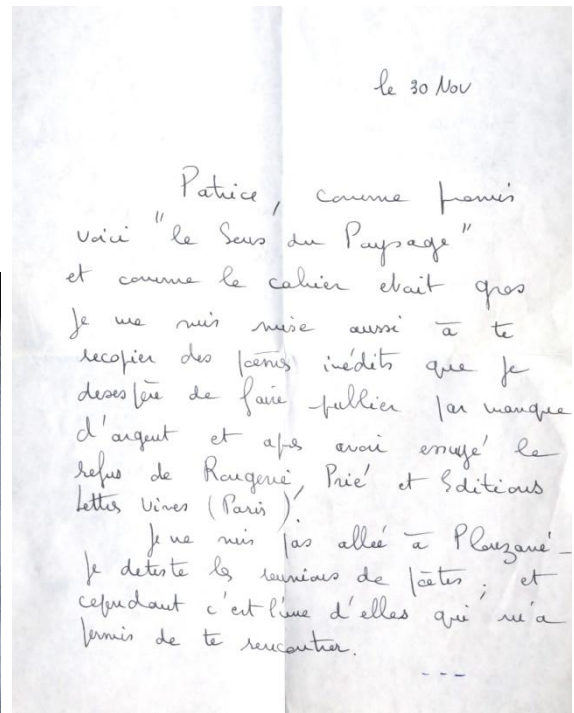 le 30 Nov
Patrice, comme promis
voici "le Sens du Paysage"
et comme le cahier etait gros
je me suis mise aussi à te
recopier des poèmes inédits que je
desespère de faire publier par manque
d'argent et après avoir essuyé le
refus de Rougerie, Prié et Editions
Lettres Vives (Paris)!
Je ne suis pas allée à Plouzané -
Je deteste les reunions de poètes, et
cependant c'est l'une d'elles qui m'a
permis de te rencontrer.
---